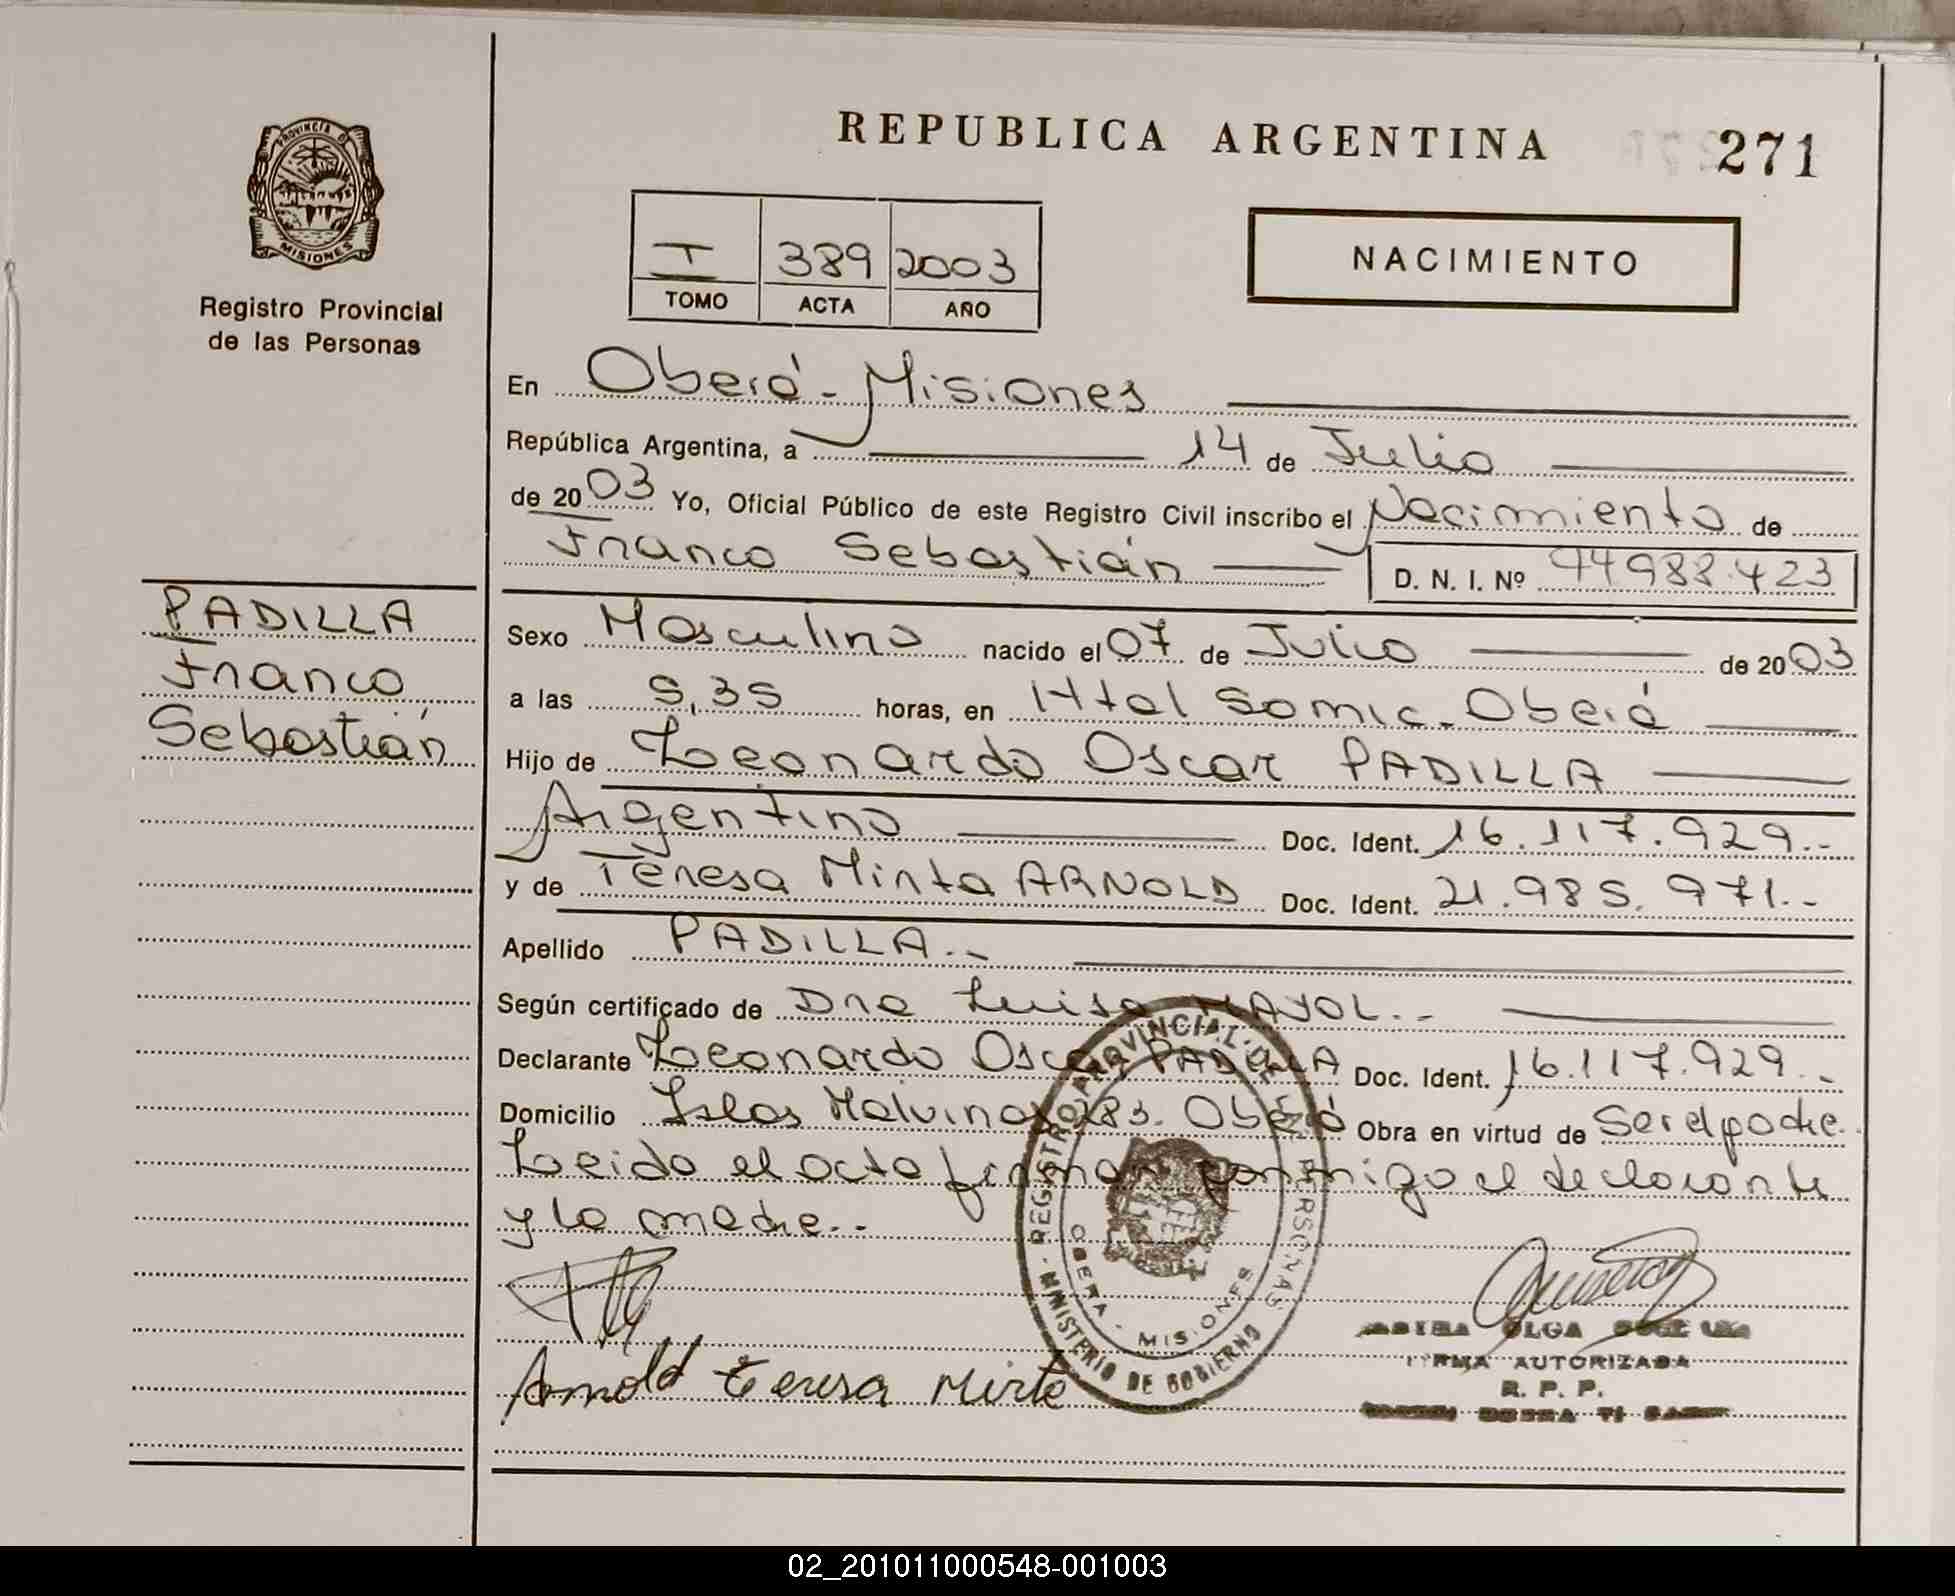 REPUBLICA ARGENTINA
271
PROVINCIA DE
MISIONES
Registro Provincial
de las Personas
I 389 2003
TOMO ACTA AÑO
NACIMIENTO
En Oberá - Misiones
República Argentina, a 14 de Julio
de 2003 Yo, Oficial Público de este Registro Civil inscribo el Nacimiento de
Franco Sebastián D. N. I. Nº 44988.423
PADILLA
Franco
Sebastián
Sexo Masculino nacido el 07 de Julio de 2003
a las 5,35 horas, en Htal Samic - Oberá
Hijo de Leonardo Oscar PADILLA
Argentino Doc. Ident. 16.117.929.-
y de Teresa Mirta ARNOLD Doc. Ident. 21.985.971.-
Apellido PADILLA.-
Según certificado de Dra Luisa MAYOL.-
Declarante Leonardo Oscar PADILLA Doc. Ident. 16.117.929.-
Domicilio Islas Malvinas 283. Oberá Obra en virtud de Ser el padre.
Leida el acta firman conmigo el declarante
y la madre.-
REGISTRO PROVINCIAL DE PERSONAS
OBERA - MISIONES
MINISTERIO DE GOBIERNO
Arnold Teresa Mirta
OLGA
FIRMA AUTORIZADA
R. P. P.
02_201011000548-001003